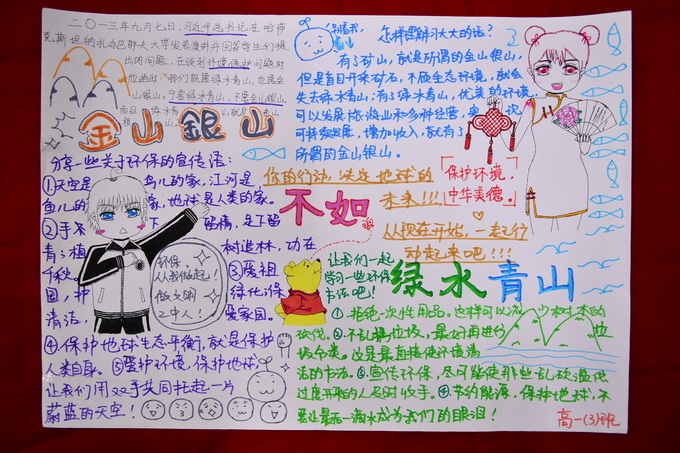 二〇一三年九月七日,习近平总书记在哈萨
克斯坦纳扎尔巴耶夫大学发表演讲并回答学生们提
出的问题,在谈到环境保护问题时
他指出:“我们既要绿水青山,也要金
山银山。宁要绿水青山,不要金山银山,
而且绿水青山就是金山
金山銀山
分享一些关于环保的宣传语:
①天空是鸟儿的家,江河是
鱼儿的家,地球是人类的家。
②手
树造林,功在
③爱祖
绿化保
爱家园。
清洁
④保护地球生态平衡,就是保护
人类自身。⑤爱护环境,保护地球,
让我们用双手共同托起一片
蔚蓝的天空!
环保,
从我做起!
做文明
二中人!
别看我,
怎样理解习大大的话?
有了矿山,就是所谓的金山银山,
但是盲目开采矿石,不顾生态环境,就会
失去绿水青山;有了绿水青山,优美的环境
可以发展旅游业和多种经营,实现
可持续发展,增加收入,就有了
所谓的金山银山。
保护环境,
中华美德。
你的行动,决定地球的
未来!!!
从现在开始,一起行
动起来吧!!!
不如
绿水青山
让我们一起
学习一些环保
书法吧!
①拒绝一次性用品,这样可以减少树木的
砍伐。②不乱扔垃圾,最好再进行垃
圾分类。这是最直接使环境清
洁的方法。③宣传环保,尽可能使那些乱砍滥伐
过度开采的人及时收手。④节约能源,保护地球,不
要让最后一滴水成为我们的眼泪!
高一(3)班